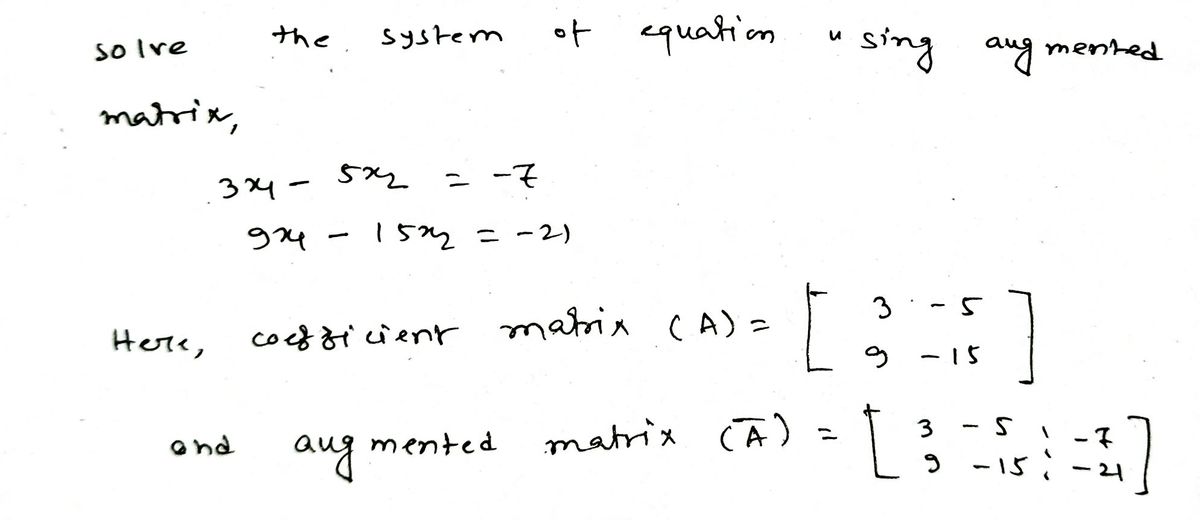 solve the system of equation using augmented
matrix,
3x₁ - 5x₂ = -7
9x₁ - 15x₂ = -21
Here, coefficient matrix (A) = [ 3 -5
9 -15 ]
and augmented matrix (A̅) = [ 3 -5 ⋮ -7
9 -15 ⋮ -21 ]